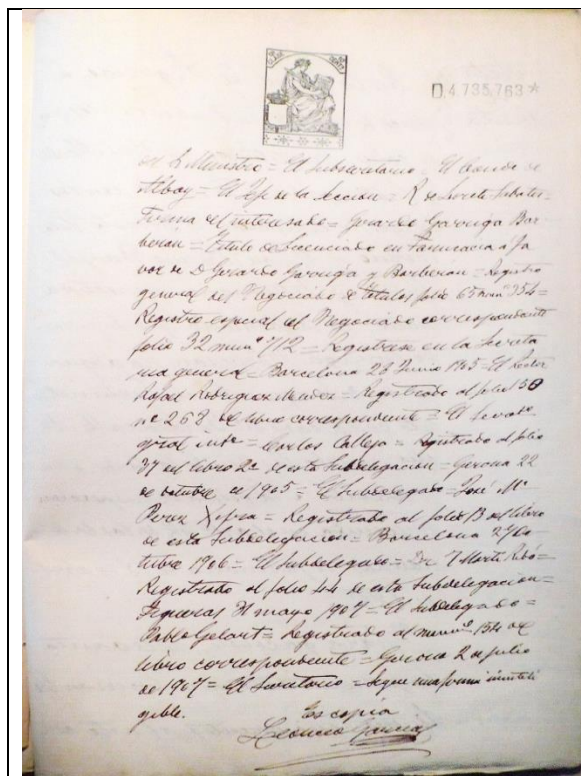 D.4.735,763*
el Ministro = El Subsecretario = El Conde de
Albay = El Jefe de la Sección = R de
Firma del interesado = Gerardo Garriga Bar
berán = Título de Licenciado en Farmacia a fa
vor de D Gerardo Garriga y Barberan = Registro
general del Negociado de Títulos folio 65 num 354 =
Registro especial del Negociado correspondiente
folio 32 num° 712 = Registrese en la Secreta
ria general = Barcelona 26 Junio 1905 = El Rector
Rafael Rodriguez Mendez = Registrado al folio 150
n° 268 del libro correspondiente = El Secret°
gral int° = Carlos Calleja = Registrado al folio
37 del libro 2° de esta Subdelegacion = Gerona 22
de octubre de 1905 = El Subdelegado José Mª
Perez Xifra = Registrado al folio 13 del libro
de esta Subdelegacion = Barcelona 27 Oc
tubre 1906 = El Subdelegado = Dr T Martí
Registrado al folio 44 de esta Subdelegacion =
Figueras 31 mayo 1907 = El Subdelegado =
Pablo Gelart = Registrado al num° 154 del
libro correspondiente = Gerona 2 de julio
de 1907 = El Secretario = Sigue una firma ininteli
gible.
Es copia
Leoncio Garcia